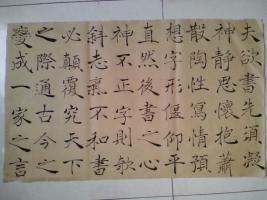 夫欲書先須凝
神靜思懷抱蕭
散陶性寫情預
想字形偃仰平
直然後書之心
神不正字則欹
斜志氣不和書
必顛覆究天下
之際通古今之
變成一家之言